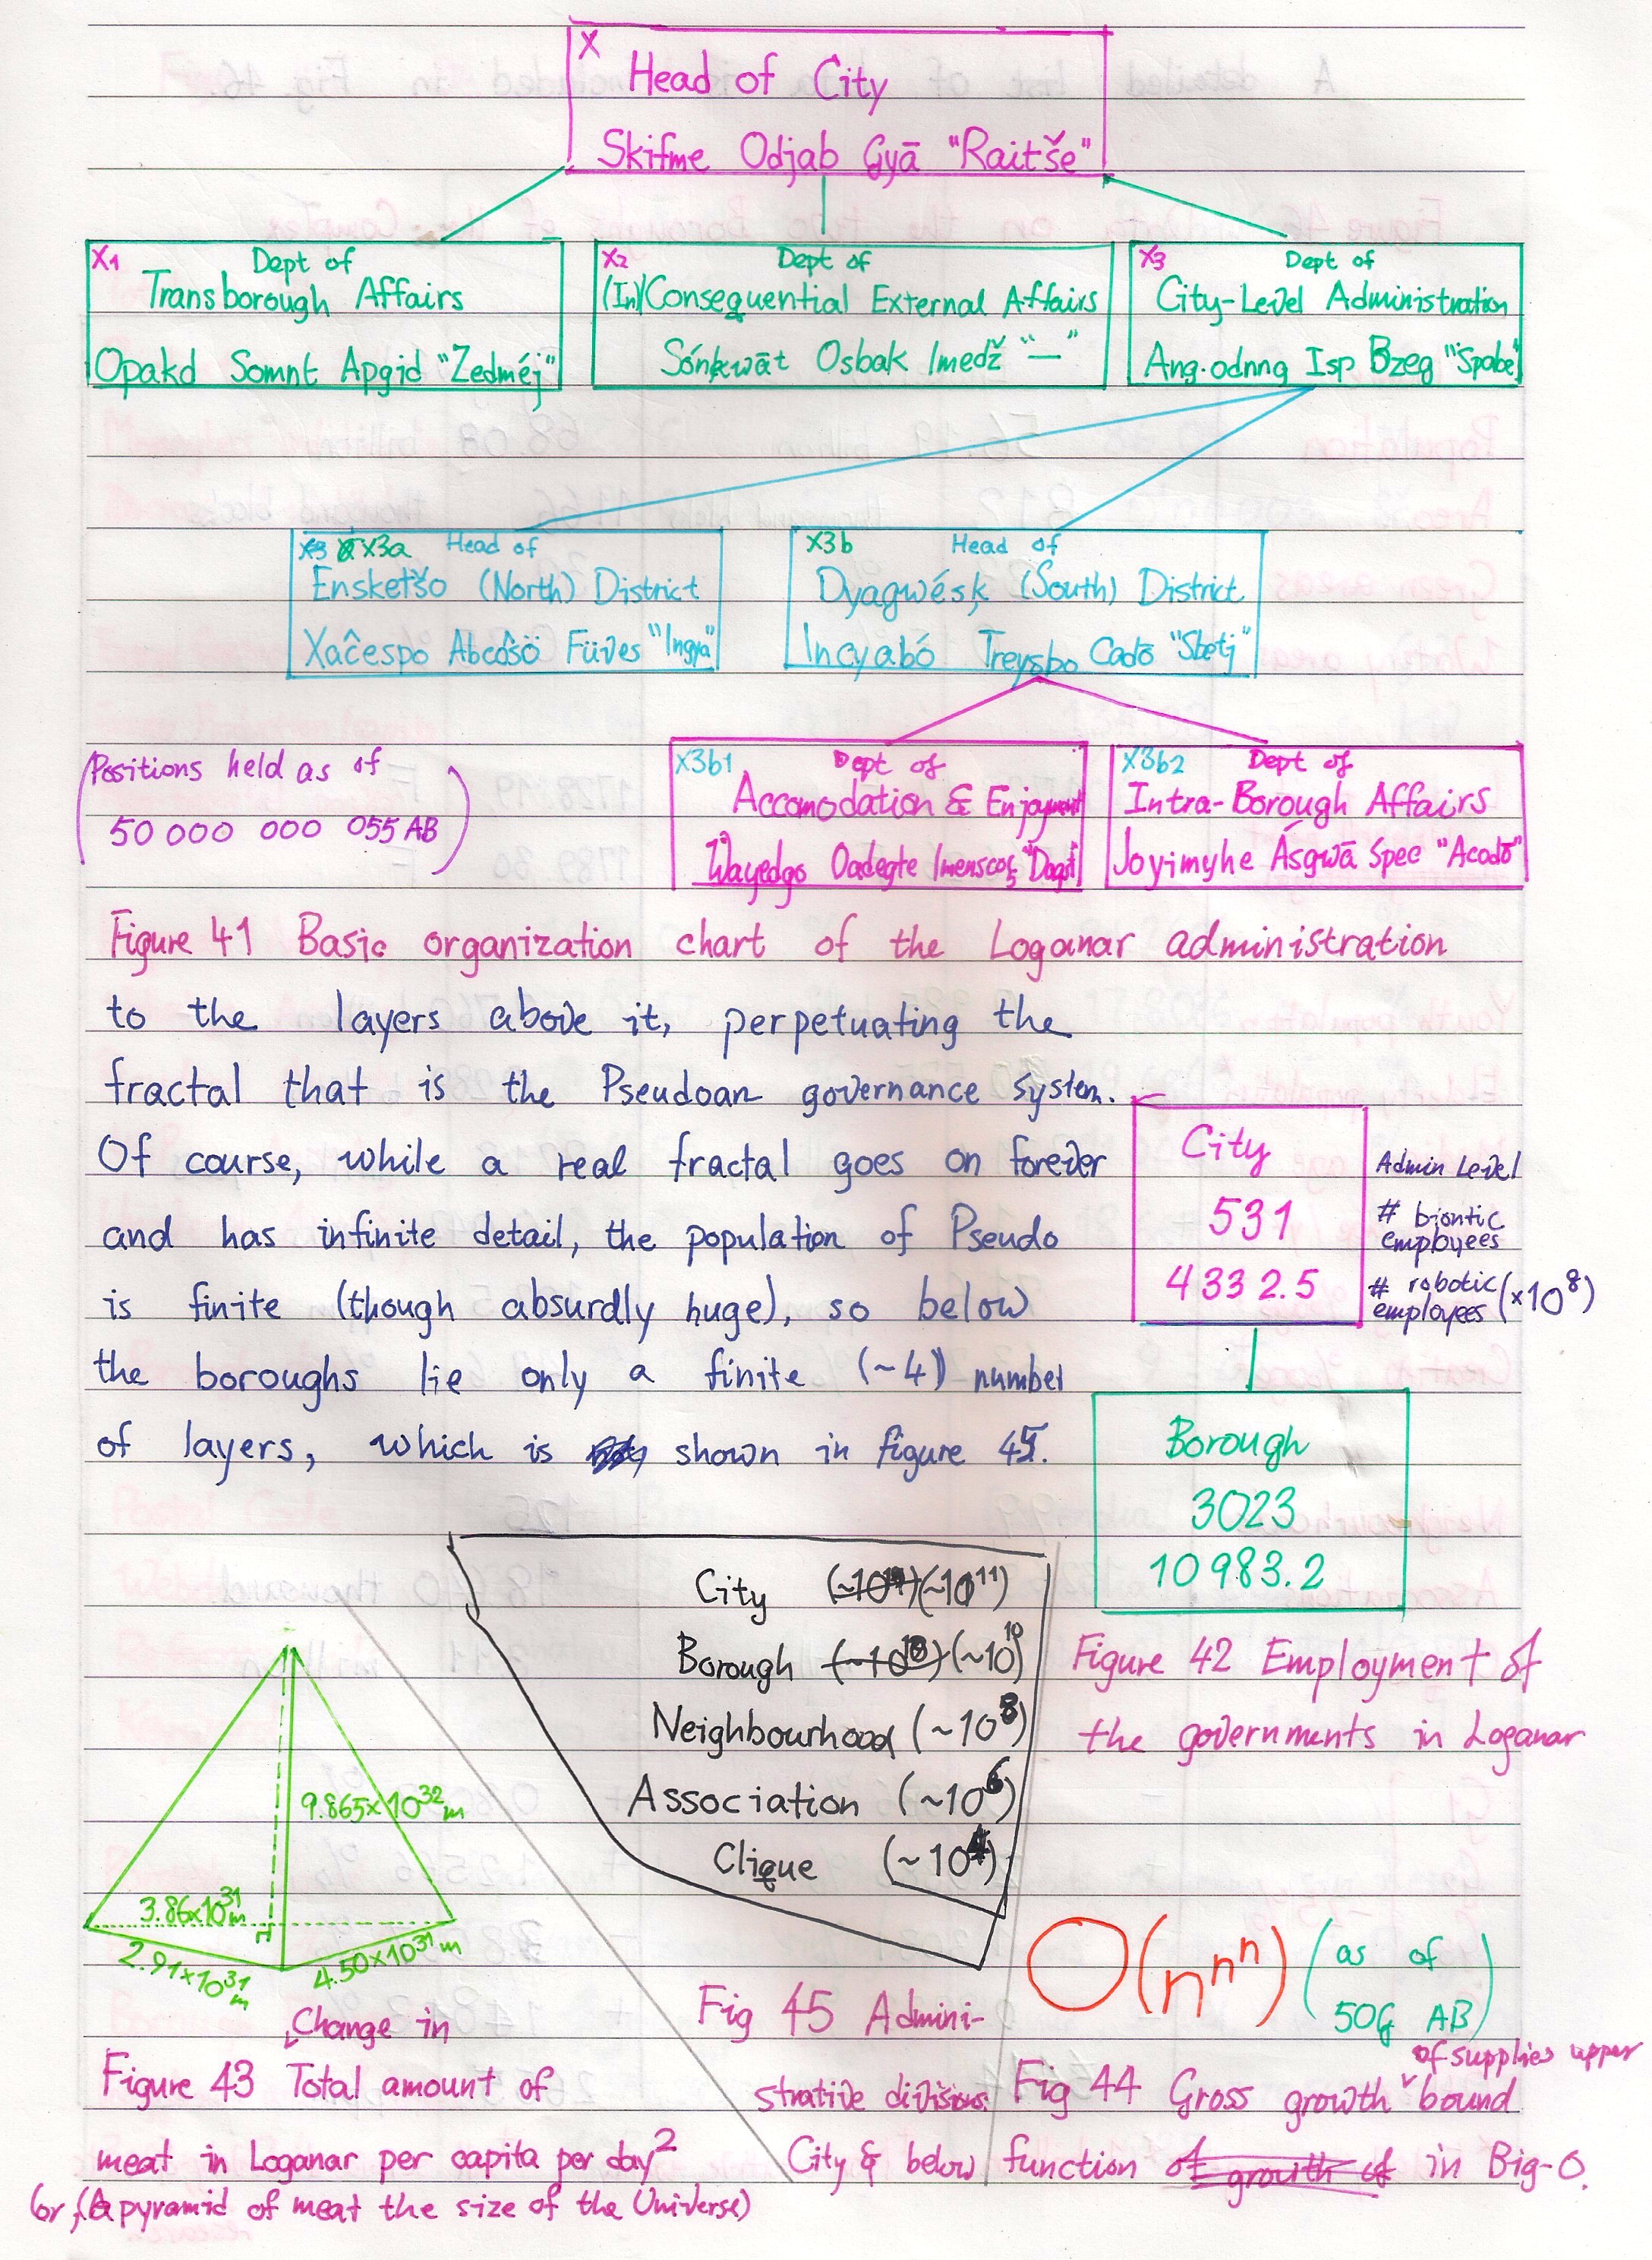 X
Head of City
Skifme Odjab Gyā "Raitše"
X1 Dept of
Transborough Affairs
Opakd Somnt Apgid "Zedméj"
X2 Dept of
(In)Consequential External Affairs
Sónkwāt Osbak Imedž "—"
X3 Dept of
City-Level Administration
Ang.odnng Isp Bzeg "Spabe"
X3a Head of
Ensketšo (North) District
Xaĉespo Abcôšö Füves "Ingya"
X3b Head of
Dyagwésk (South) District
Incyabó Treysbo Cadō "Sbetj"
(Positions held as of
50 000 000 055 AB)
X3b1 Dept of
Accomodation & Enjoyment
Wayedgo Oadegte
X3b2 Dept of
Intra-Borough Affairs
Joyimyhe Ásgwā Spec "Acadō"
Figure 41 Basic organization chart of the Loganar administration
to the layers above it, perpetuating the
fractal that is the Pseudoan governance system.
Of course, while a real fractal goes on forever
and has infinite detail, the population of Pseudo
is finite (though absurdly huge), so below
the boroughs lie only a finite (~4) number
of layers, which is shown in figure 45.
City
531
4332.5
Admin Level
# biontic
employees
# robotic
employees (×10⁸)
Borough
3023
10983.2
Figure 42 Employment of
the governments in Loganar
City (~10¹¹)
Borough (~10¹⁰)
Neighbourhood (~10⁸)
Association (~10⁶)
Clique (~10⁴)
Fig 45 Admini-
strative divisions
City & below
9.865×10³² m
3.86×10³¹ m
2.91×10³¹ m
4.50×10³¹ m
Change in
Figure 43 Total amount of
meat in Loganar per capita per day²
(or, (A pyramid of meat the size of the Universe)
O(nⁿⁿ) (as of
50G AB)
of supplies upper
Fig 44 Gross growth bound
function of growth of in Big-O.